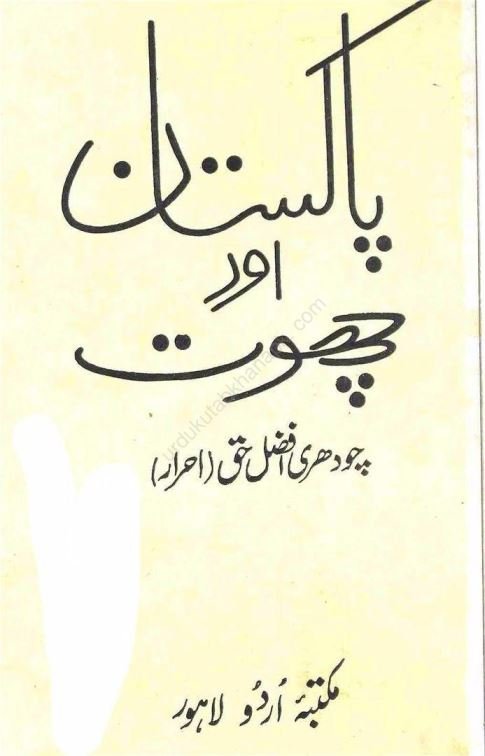 پاکستان
اور
چھوت
چودھری افضل حق (احرار)
مکتبۂ اُردُو لاہور
urdukutabkhanapk.com